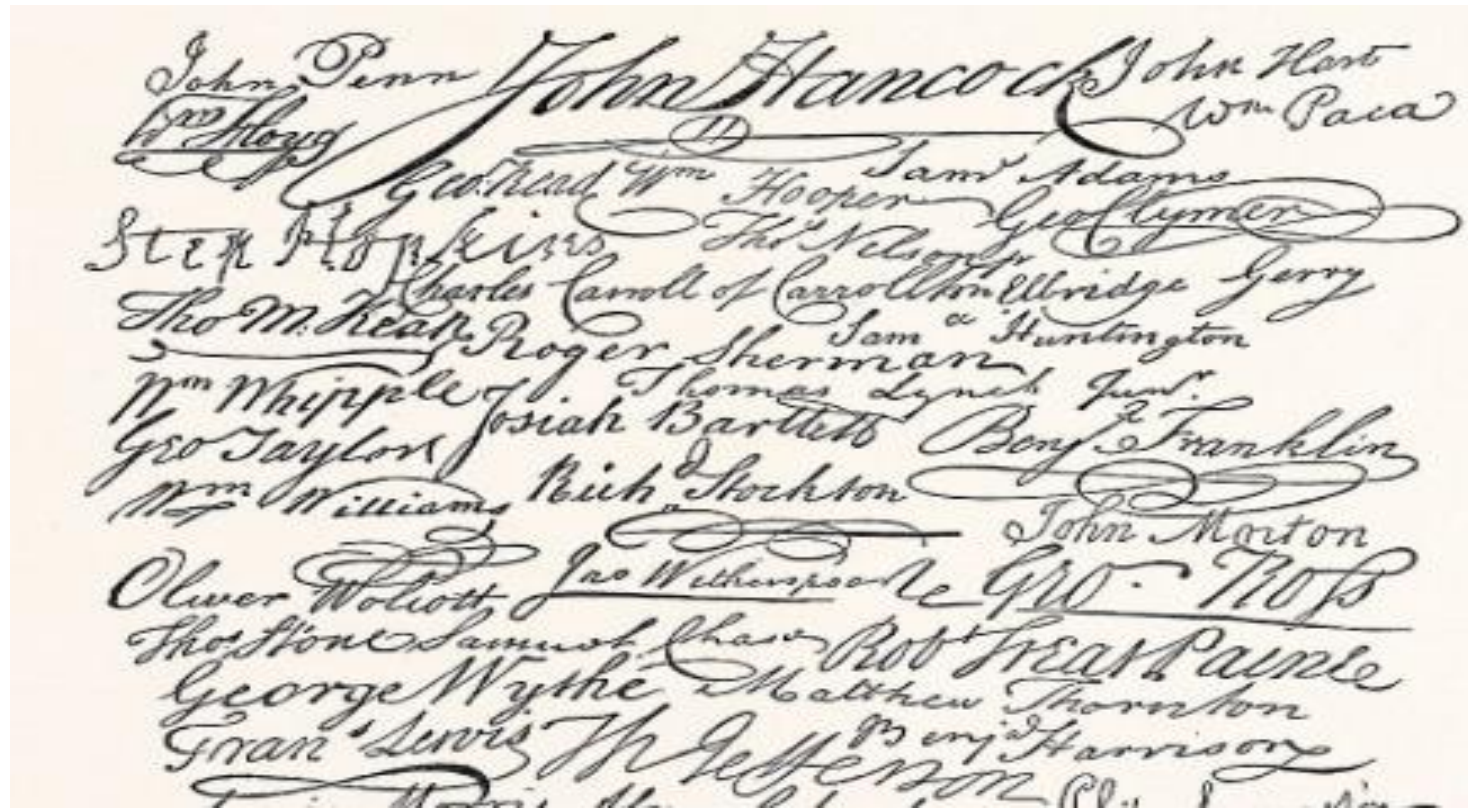 John Penn John Hancock John Hart
Wm Floyd Wm Paca
Geo. Read Wm Hooper Saml Adams
Geo Clymer
Step Hopkins Thos Nelson jr
Charles Carroll of Carrollton Elbridge Gerry
Tho M. Kean Roger Sherman Saml Huntington
Wm Whipple Thomas Lynch Junr.
Josiah Bartlett Benj Franklin
Geo Taylor
Wm Williams Richd Stockton
John Morton
Oliver Wolcott Jno Witherspoon Geo. Ross
Thos Stone Samuel Chase Robt Treat Paine
George Wythe Matthew Thornton
Frans Lewis Th Jefferson Benj Harrison
Morris